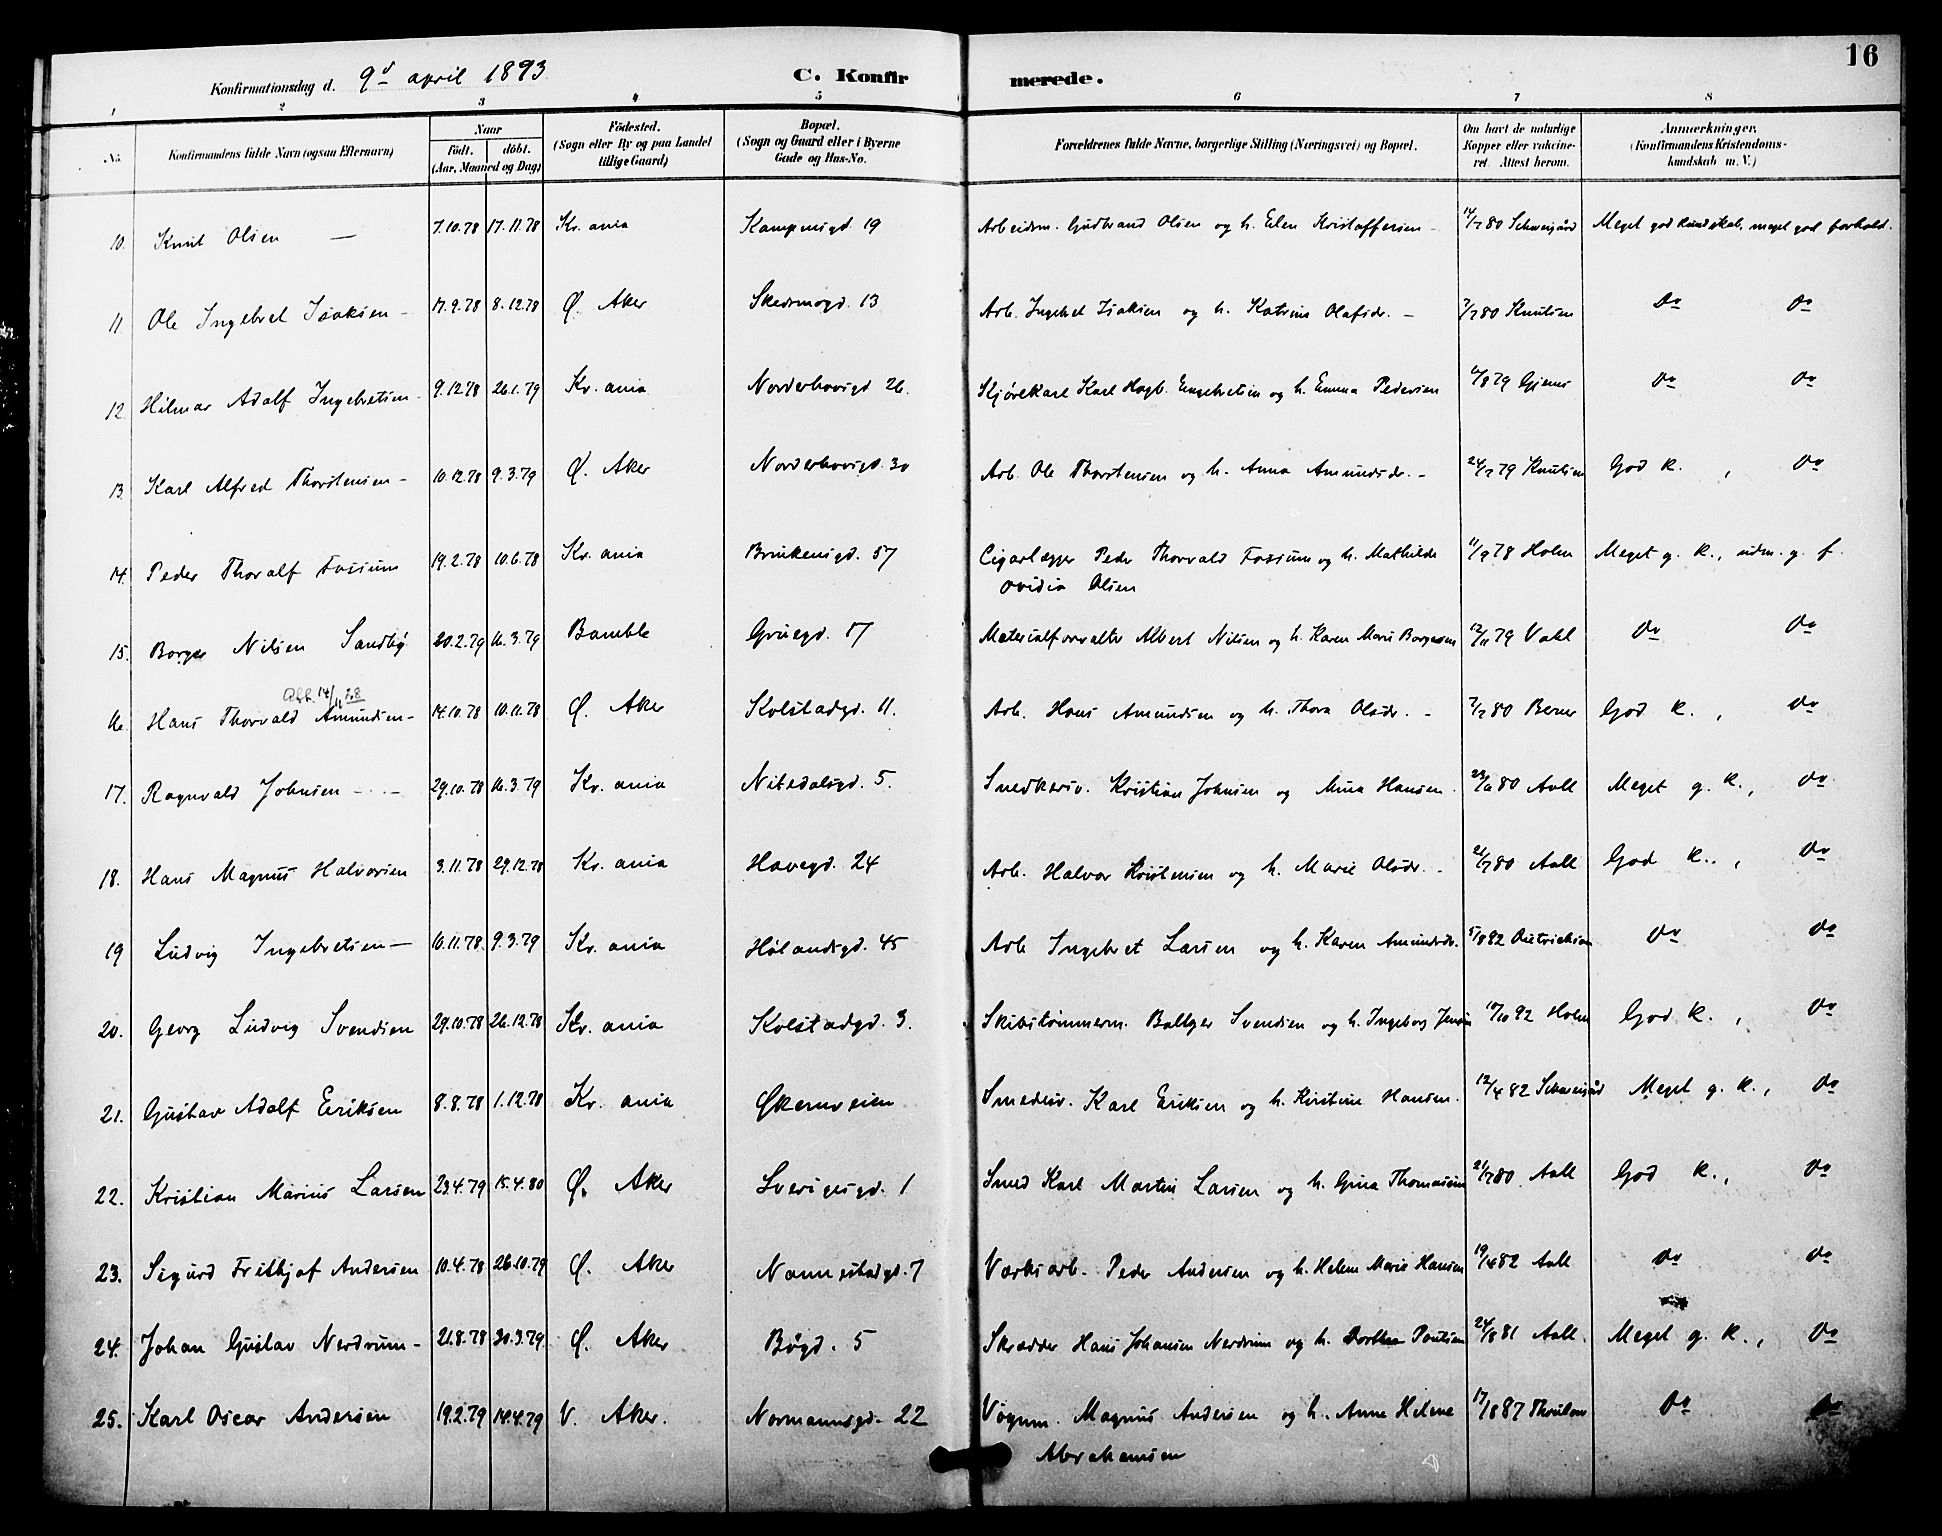 16
Konfirmationsdag d. 9d april 1893 C. Konfirmerede.
1 2 3 4 5 6 7 8
No. Konfirmandens fulde Navn (ogsaa Efternavn) Naar Födt. döbt. (Aar, Maaned og Dag) Födested. (Sogn eller By og paa Landet tillige Gaard) Bopæl. (Sogn og Gaard eller i Byerne Gade og Hus-No. Forældrenes fulde Navne, borgerlige Stilling (Næringsvei) og Bopæl. Om havt de naturlige Kopper eller vakcineret. Attest herom. Anmærkninger. (Konfirmandens Kristendomskundskab m. V.)
10. Knut Olsen — 7.10.78 17.11.78 Kr. ania Kampensgd 19 Arbeidsm. Gudbrand Olsen og h. Elen Kristoffersen - 14/7 80 Schweigård Meget god kundskab, meget god forhold.
11. Ole Ingebret Isaksen - 17.9.78 8.12.78 Ø. Aker Skedsmogd. 13 Arb. Ingebret Isaksen og h. Katrine Olafsdr. - 7/7 80 Knutsen Do Do
12. Hilmar Adolf Ingebretsen - 9.12.78 26.1.79 Kr. ania Norderhovsgd 26. Kjørekarl Karl Hagb. Engebretsen og h. Emma Pedersen 6/8 79 Gjems Do Do
13. Karl Alfred Thorstensen - 10.12.78 9.3.79 Ø. Aker Norderhovsgd. 30 Arb. Ole Thorstensen og h. Anna Amundsdr. - 24/7 79 Knutsen God k. , Do
14. Peder Thoralf Fossum 19.2.78 10.6.78 Kr. ania Brinkensgd. 57 Cigarlægger Peder Thorvald Fossum og h. Mathilde Ovidia Olsen 11/9 78 Holm Meget g. k., udm. g. f.
15. Borger Nilsen Sandby 20.2.79 16.3.79 Bamble Gruegd. 17 Materialforvalter Albert Nilsen og h. Karen Marie Borgesen 12/11 79 Vahl Do Do
Aft. 14/11 28
16. Hans Thorvald Amundsen - 14.10.78 10.11.78 Ø. Aker Kolstadgd. 11. Arb. Hans Amundsen og h. Thora Olsdr. - 7/7 80 Berner God k. , Do
17. Ragnvald Johnsen - - 29.10.78 16.3.79 Kr. ania Nitedalsgd. 5. Snedkersv. Kristian Johnsen og Mina Hansen. 80 Aall Meget g. k. , Do
18. Hans Magnus Halvorsen 3.11.78 29.12.78 Kr. ania Havegd. 24 Arb. Halvor Kristensen og h. Marie Olsdr. - 21/7 80 Aall God k. , Do
19 Ludvig Ingebretsen — 16.11.78. 9.3.79 Kr. ania Hølandsgd. 45 Arb Ingebret Larsen og h. Karen Amundsdr. 5/8 82 Dietrichson Do Do
20. Georg Ludvig Svendsen 29.10.78 26.12.78 Kr. ania Kolstadgd. 3. Skibstømmerm. Baltzer Svendsen og h. Ingeborg Jensen 18/10 92 Holm God k. , Do
21. Gustav Adolf Eriksen 8.8.78 1.12.78 Kr. ania Økernveien Smedesv. Karl Eriksen og h. Kirstine Hansen. 12/4 82 Schweigård Meget g. k. , Do
22. Kristian Marius Larsen 23.4.79 15.4.80 Ø. Aker Sverigesgd. 1 Smed Karl Martin Larsen og h. Gina Thomasen 21/7 80 Aall God k. , Do
23. Sigurd Frithjof Andersen 10.4.78 26.10.79 Ø. Aker Nannestadgd. 7 Værksarb. Peder Andersen og h. Helene Marie Hansen 19/4 82 Aall Do Do
24. Johan Gustav Nerdrum - 21.8.78 30.3.79 Ø. Aker Bøgd. 5 Skrædder Hans Johansen Nerdrum og h. Dorthea Poulsen 24/8 81 Aall. Meget g. k. , Do
25. Karl Oscar Andersen 19.2.79 14.4.79 V. Aker. Normannsgd. 22 Vognm. Magnus Andersen og h. Anne Helene Abrahamsen 17/10 87 Thoulow Do Do